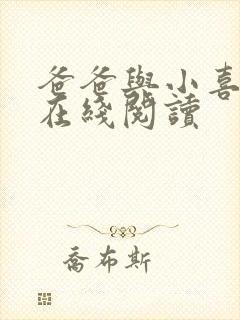 爸爸與小喜
在綫閱讀
喬布斯